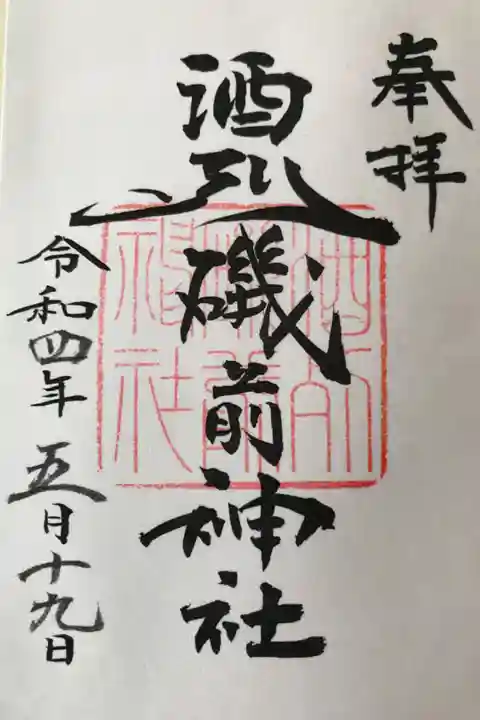 奉拝
酒列磯前神社
酒列
磯前
神社
令和四年五月十九日